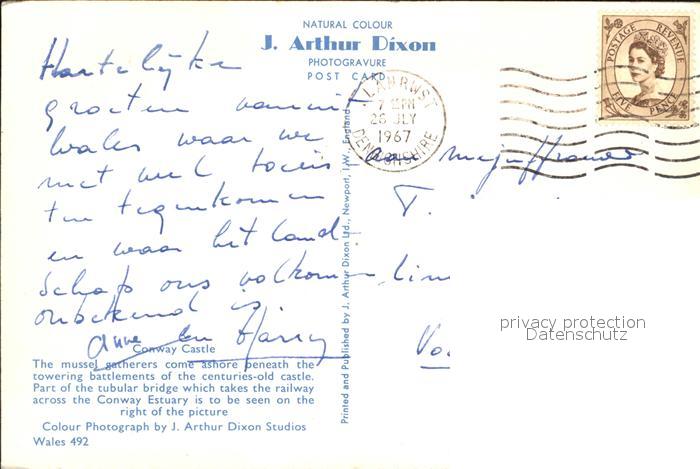 NATURAL COLOUR
J. Arthur Dixon
PHOTOGRAVURE
POST CARD
LLANRWST
7 PM
26 JLY
1967
DENBIGHSHIRE
POSTAGE REVENUE
FIVE PENCE
Hartelijke
groeten vanuit
Wales waar we
niet veel toeris
ten tegenkomen
en waar het land
schap ons volkomen
onbekend is
Anne en Harry
Conway Castle
The mussel gatherers come ashore beneath the
towering battlements of the centuries-old castle.
Part of the tubular bridge which takes the railway
across the Conway Estuary is to be seen on the
right of the picture
Colour Photograph by J. Arthur Dixon Studios
Wales 492
Printed and Published by J. Arthur Dixon Ltd., Newport, I.W., England
aan mejuffrouw
T.
Lin
Vo
privacy protection
Datenschutz